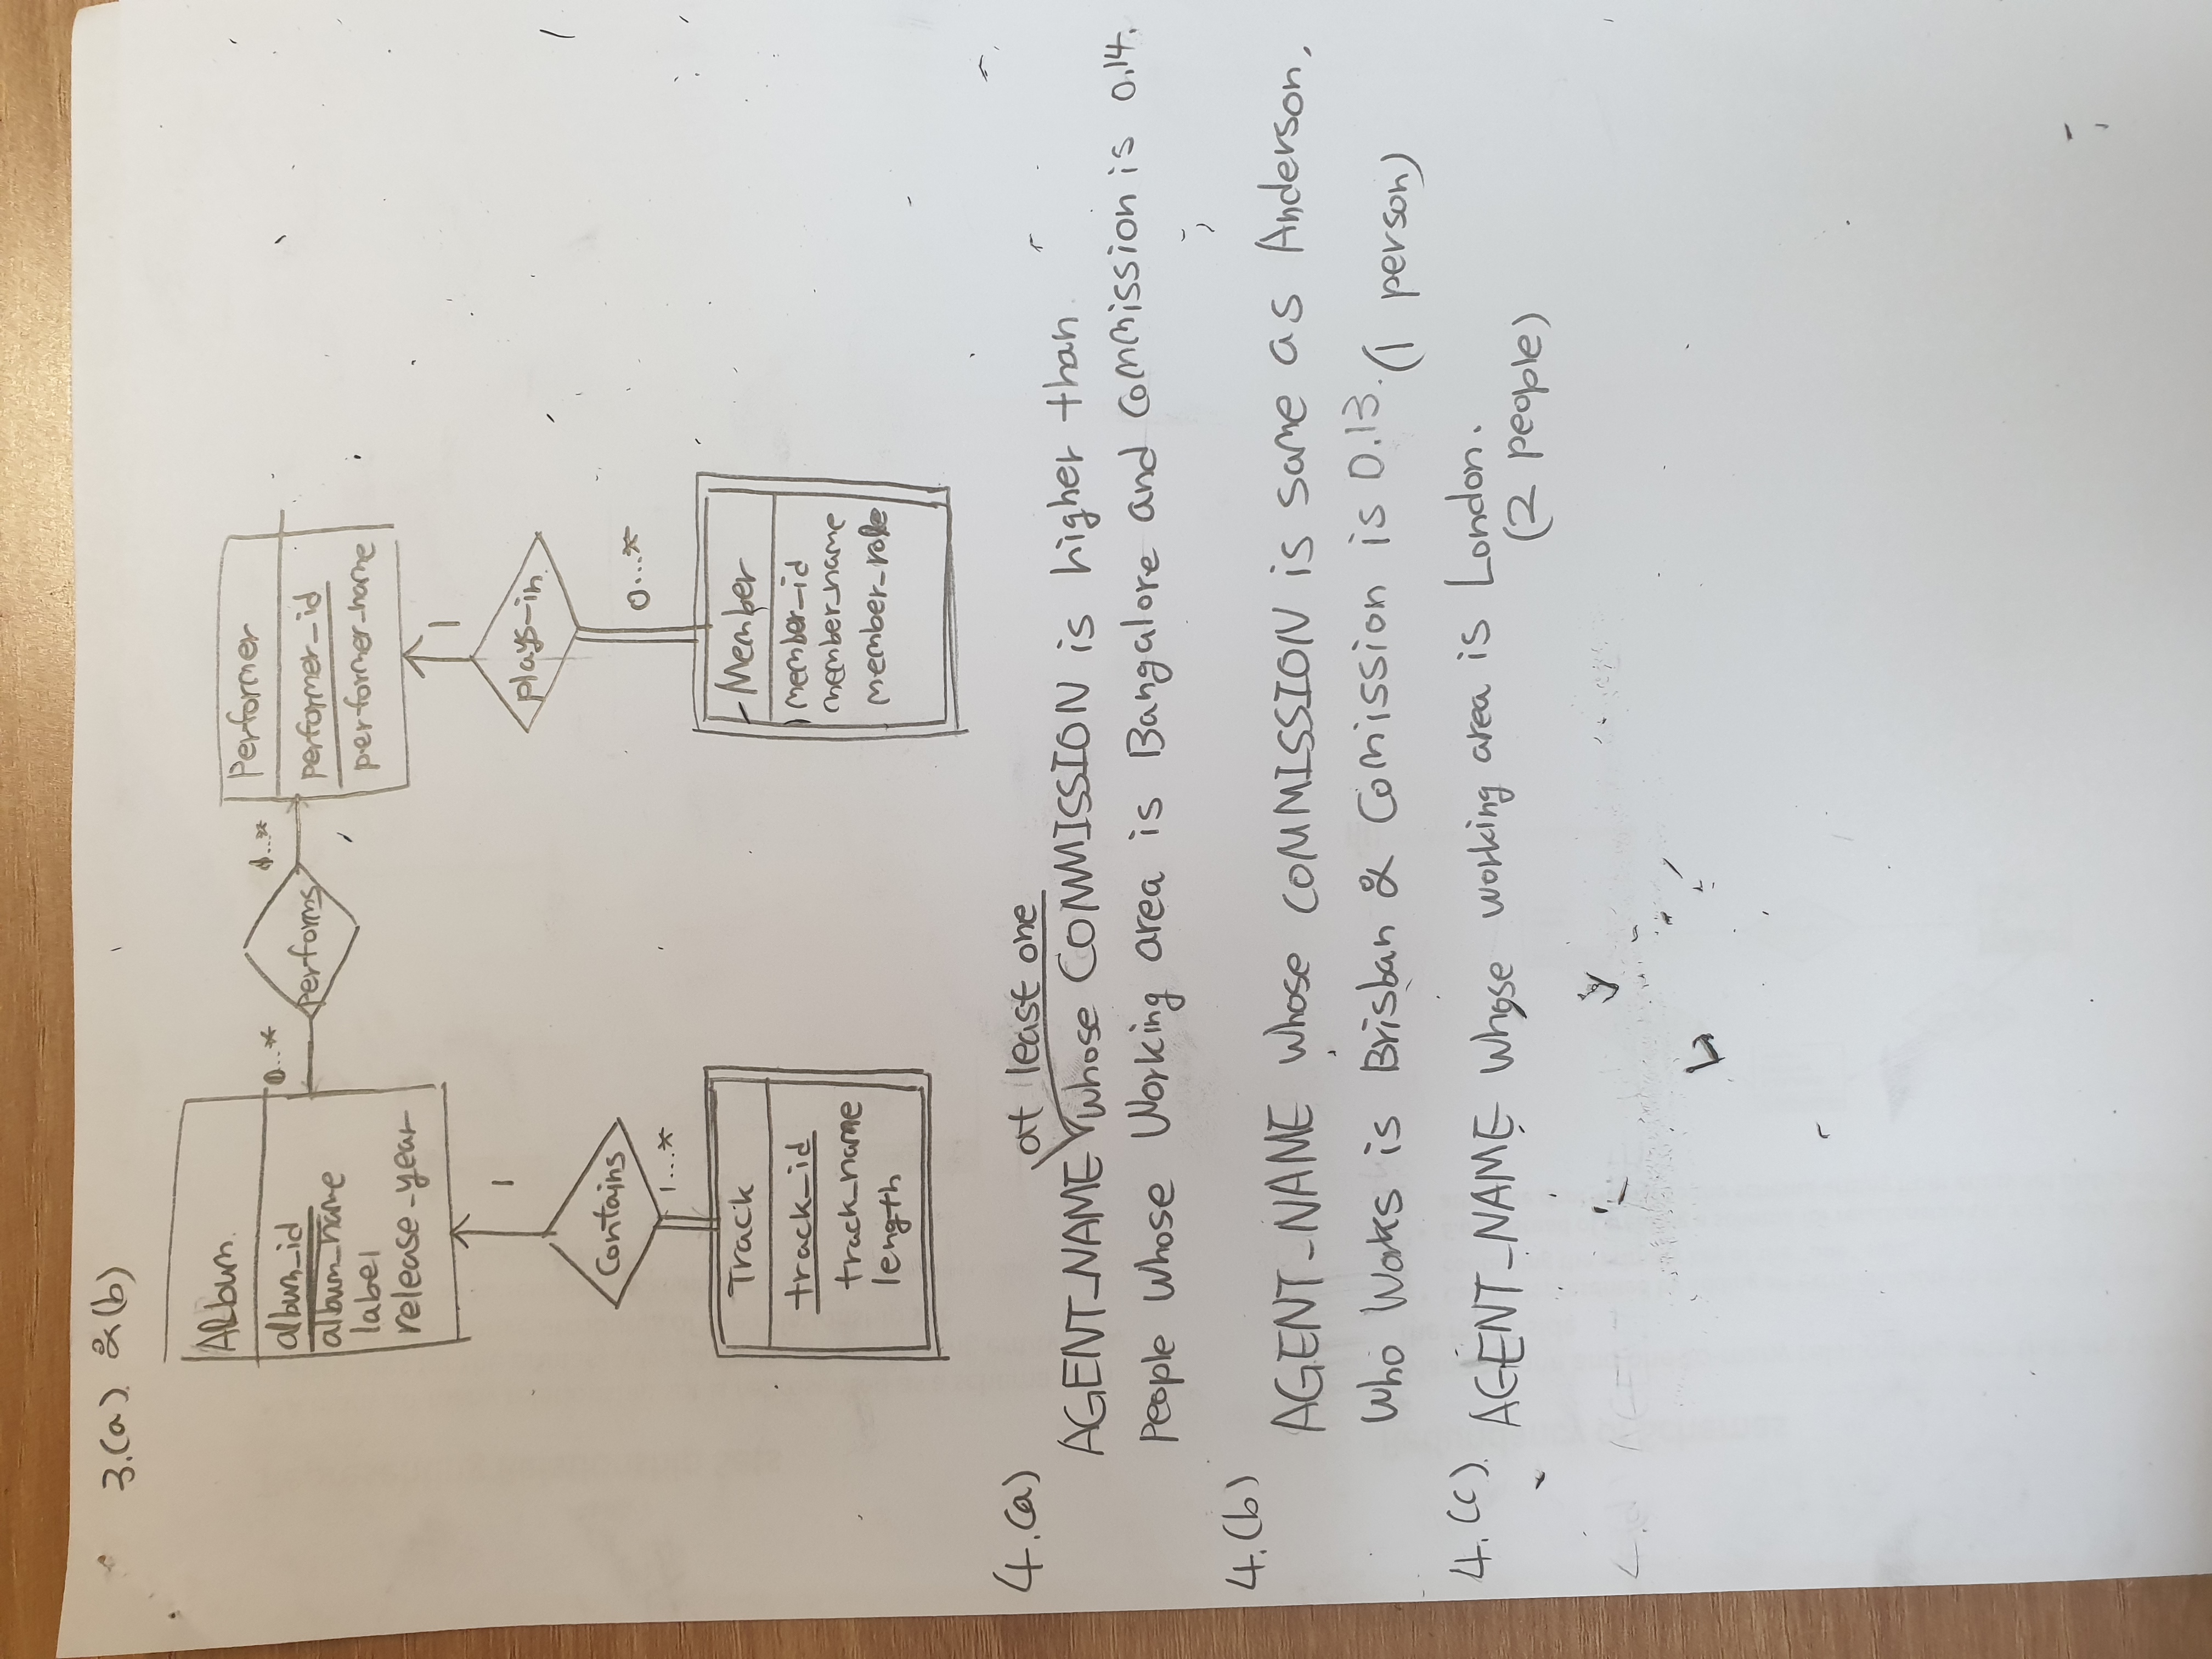 3.(a) &(b)
Album
album_id
album_name
label
release_year
0...*
performs
1...*
Performer
performer_id
performer_name
1
Contains
1...*
1
plays-in
0...*
Track
track_id
track_name
length
Member
member_id
member_name
member_role
4.(a)
at least one
AGENT_NAME whose COMMISSION is higher than
People whose Working area is Bangalore and commission is 0.14.
4.(b)
AGENT_NAME whose COMMISSION is same as Anderson,
who works is Brisban & Comission is 0.13. (1 person)
4.(c) AGENT_NAME whose working area is London.
(2 people)